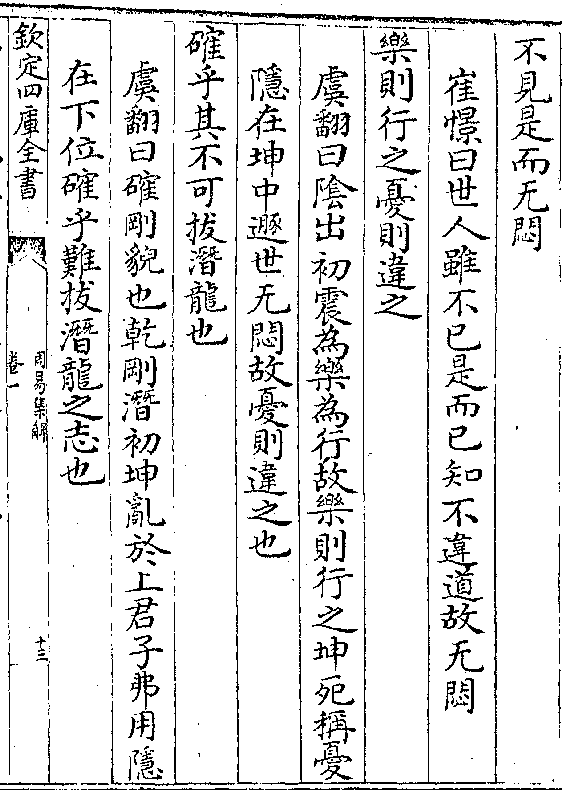 不見是而无悶
崔憬曰世人雖不已是而已知不違道故无悶
樂則行之憂則違之
虞翻曰隂出初震為樂為行故樂則行之坤死稱憂
隱在坤中遯世无悶故憂則違之也
確乎其不可拔潛龍也
虞翻曰確剛貌也乾剛潛初坤亂於上君子弗用隱
在下位確乎難拔潛龍之志也
欽定四庫全書
周易集解
卷一
十三